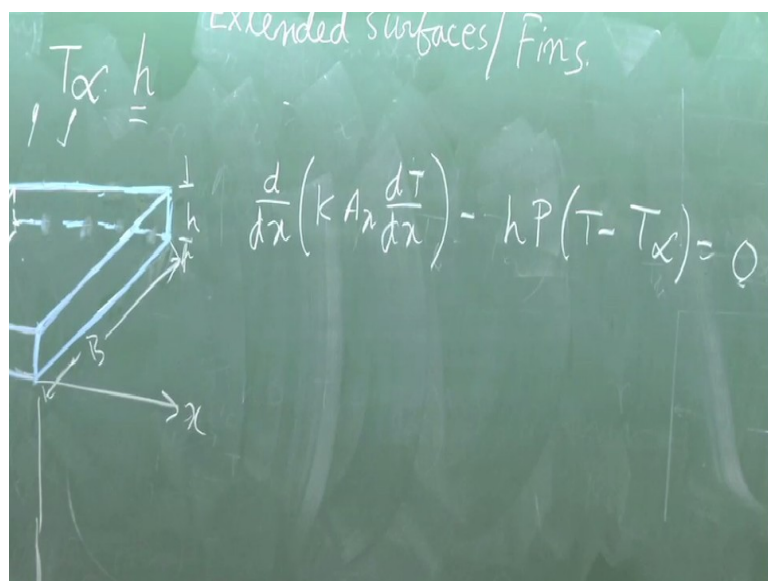 Extended Surfaces/Fins.
T∝ h
d/dx (K Ax dT/dx) - hP(T - T∝) = 0
h
B
x